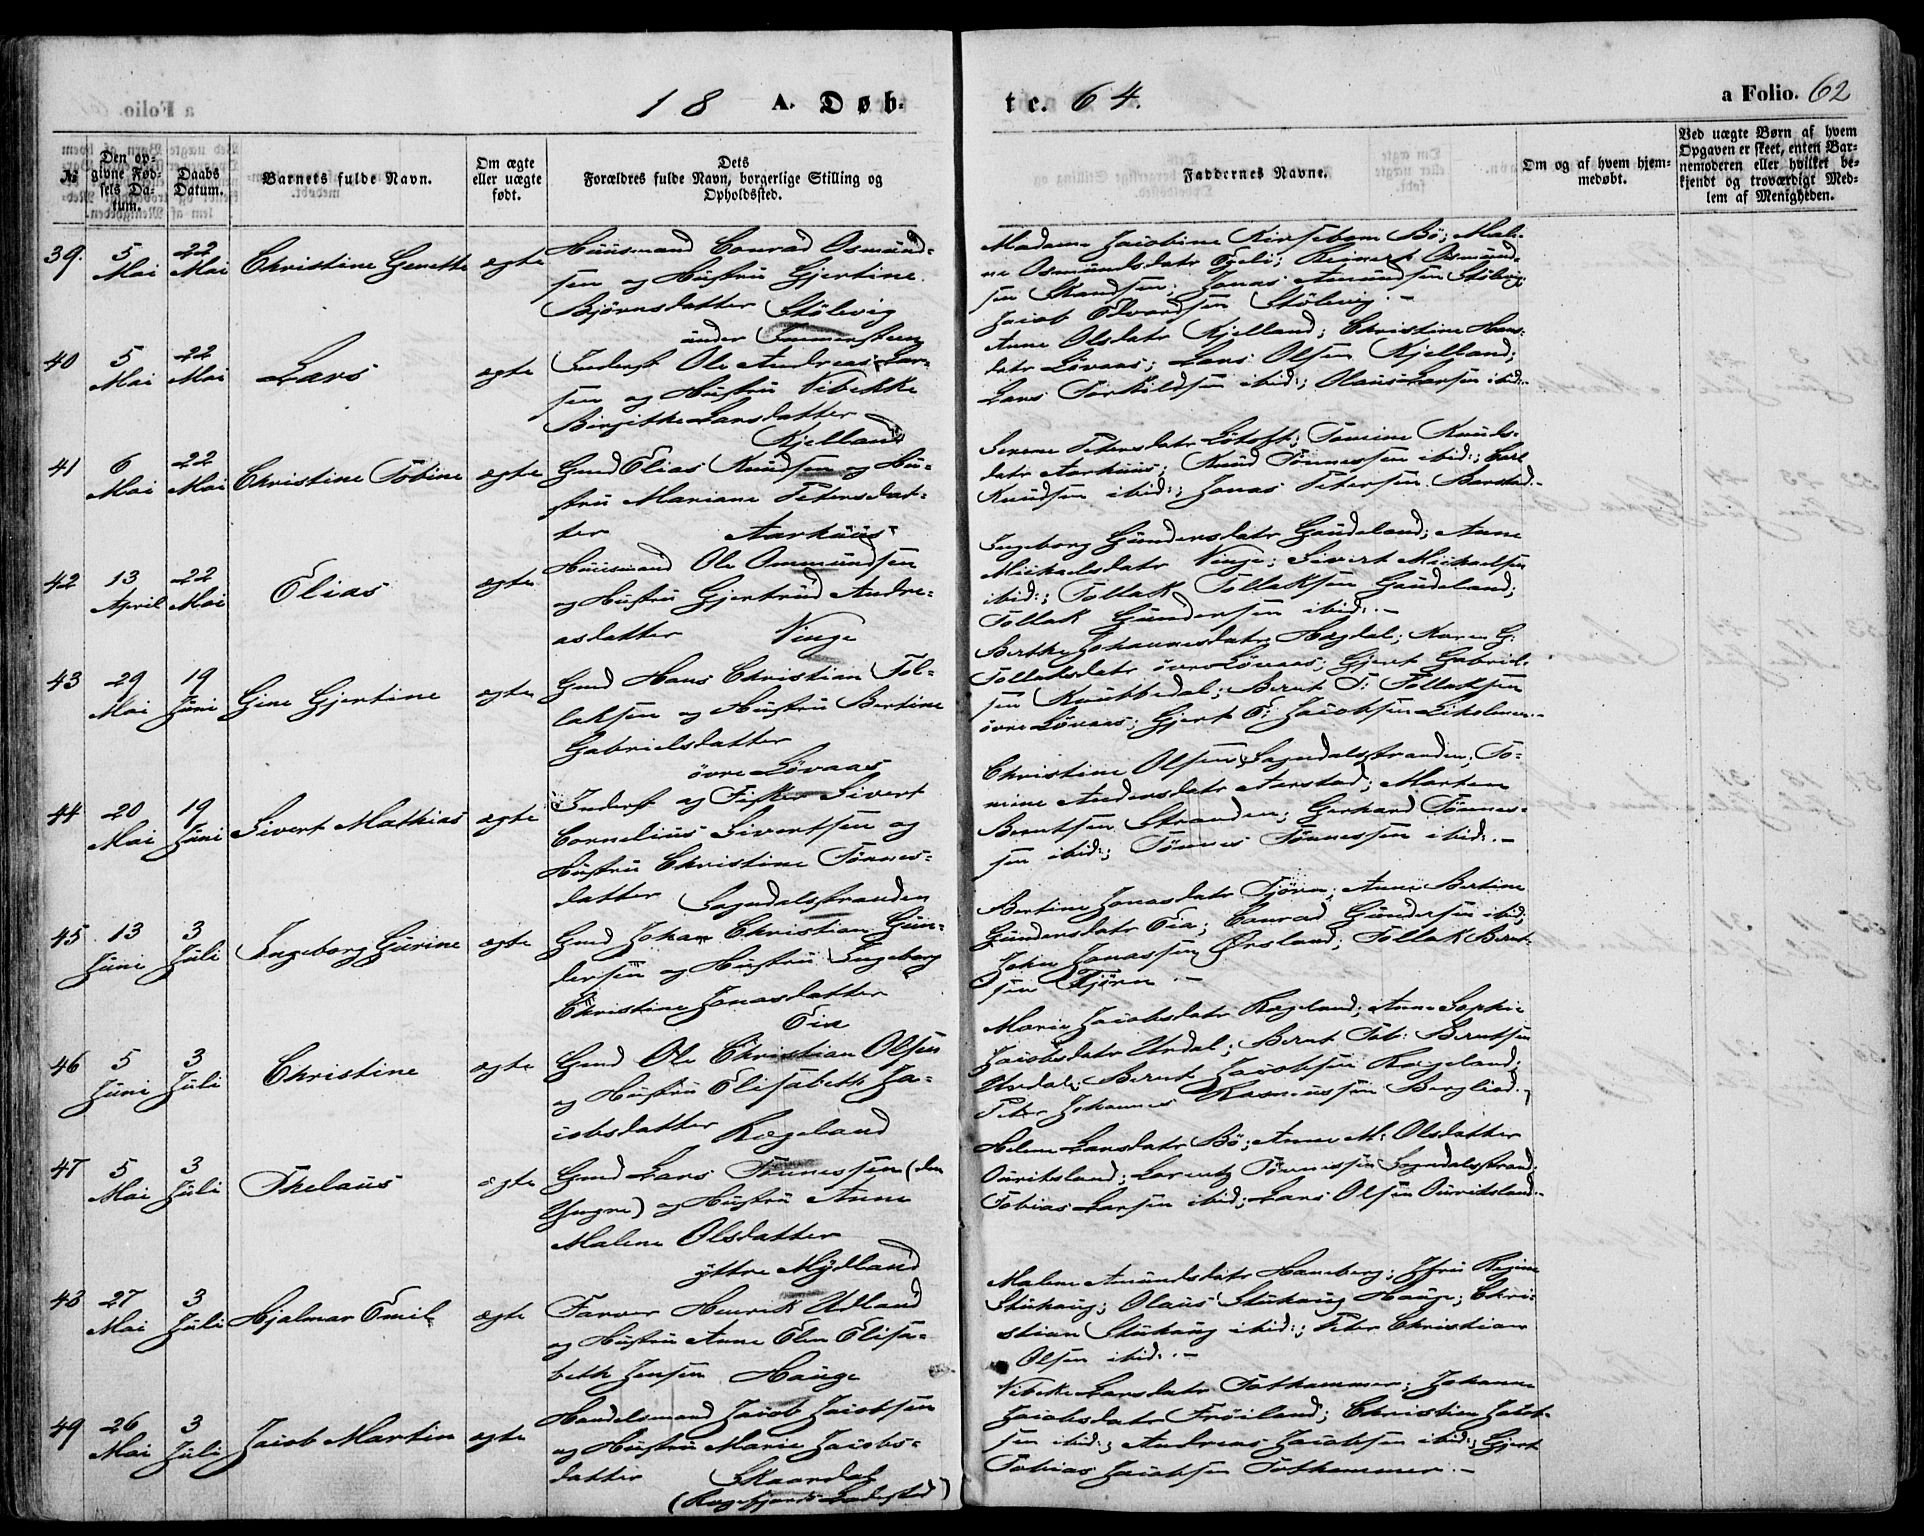 18 A. Døb-
te. 64.
a Folio. 62
№
Den op-
givne Fød-
sels Da-
tum.
Daabs
Datum.
Barnets fulde Navn.
Om ægte
eller uægte
født.
Dets
Forældres fulde Navn, borgerlige Stilling og
Opholdssted.
Faddernes Navne.
Om og af hvem hjem-
medøbt.
Ved uægte Børn af hvem
Opgaven er skeet, enten Bar-
nemoderen eller hvilket be-
kjendt og troværdigt Med-
lem af Menigheden.
39. 5 Mai 22 Mai Christine Genette ægte
Huusmand Conrad Osmund-
sen og Hustru Gjertine
Bjørnsdatter Stölevig
under
Madame Jacobine Kirsebom Bö; Mali-
ne Osmundsdatr Reinert Osmund-
sen Jonas Amundsen Stölevig;
Jacob Edvardsen Stölevig.-
40 5 Mai 22 Mai Lars ægte
Inderst Ole Andreas Lar-
sen og Hustru Vibekke
Birgithe Larsdatter
Kjelland
Anne Olsdatr Kjelland; Christine Hans-
datr Lövaas; Lars Olsen Kjelland;
Lars Torkildsen ibid:; Olaus Larsen ibid:.
41 6 Mai 22 Mai Christine Tobine ægte
Gmd Elias Knudsen og Hu-
stru Mariane Petersdat-
ter Aarhuus
Serene Petersdatr Tomine Knuds-
datr Aarhuus; Knud Tönnessen ibid:; Carl
Knudsen ibid:; Jonas Petersen Barstad.-
42 13 April 22 Mai Elias ægte
Huusmand Ole Ommundsen
og Hustru Gjertrud Andre-
asdatter Vinge
Ingeborg Gundersdatr Gaudeland; Anne
Michaelsdatr Vinge; Sivert Michaelsen
ibid:; Tollak Tollaksen Gaudeland;
Tollak Gundersen ibid:.-
43 29 Mai 19 Juni Gine Gjertine ægte
Gmd Hans Christian Tol-
laksen og Hustru Bertine
Gabrielsdatter
övre Lövaas
Berthe Johannesdatr Hogdal; Karen G:
Tollaksdatr övre Lövaas; Gjert Gabriel-
sen Bernt T: Tollaksen
övre Lövaas; Gjert T: Jacobsen
44 20 Mai 19 Juni Sivert Mathias ægte
Inderst og Fisker Sivert
Cornelius Sivertsen og
Hustru Christine Tönnes-
datter Sogndalsstranden
Christine Olsen Sogndalsstranden; To-
mine Andersdatr Aarstad; Marten
Berntsen Stranden; Gerhard Tönnes-
sen ibid:; Tönnes Tönnessen ibid:.-
45 13 Juni 3 Juli Ingeborg Gurine ægte
Gmd Johan Christian Gun-
dersen og Hustru Ingeborg
Christine Jonasdatter
Eia
Bertine Jonasdatr Tjörn; Anne Bertine
Gundersdatr Eia; Conrad Gundersen ibid;
John Jonassen Örsland; Tollak Bernt-
sen Tjörn.-
46 5 Juni 3 Juli Christine ægte
Gmd Ole Christian Olsen
og Hustru Elisabeth Ja-
cobsdatter Rægeland
Marie Jacobsdatr Rægeland; Anne Sophie
Jacobsdatr Urdal; Bernt Tob: Berntsen
Urdal; Bernt Jacobsen Rægeland;
Peter Johannes Rasmussen
47 5 Mai 3 Juli Thelaus ægte
Gmd Lars Tönnessen (den
Yngre) og Hustru Anne
Malene Olsdatter
yttre Mydland
Helene Larsdatr Bö; Anne M: Olsdatter
Ouritsland; Lorentz Tönnessen Sogndalsstrand;
Tobias Larsen ibid; Lars Olsen Ouritsland.-
48 27 Mai 3 Juli Hjalmar Emil ægte
Farver Henrik Udland
og Hustru Anne Elen Elisa-
beth Jensen Hauge
Malene Amundsdatr Haneberg; Jfru Regine
Stuhaug; Olaus Stuhaug Hauge; Chri-
stian Stuhaug ibid:; Peter Christian
Olsen ibid:.-
49 26 Mai 3 Juli Jacob Martin ægte
Handelsmand Jacob Jacobsen
og Hustru Marie Jacobs-
datter Skaardal
(Ragefjords Ladested)
Vibeke Larsdatr Tothammer; Johanne
Jacobsdatr Fröiland; Christian Jacob-
sen ibid:; Andreas Jacobsen ibid:; Gjert
Tobias Jacobsen Tothammer.-